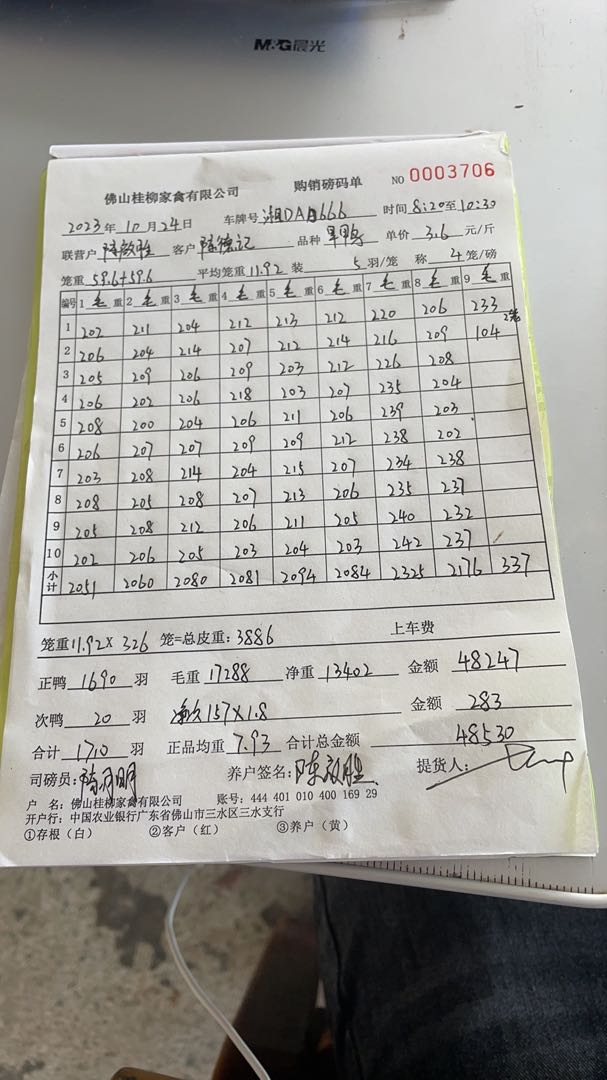 M&G晨光
佛山桂柳家禽有限公司 购销磅码单 NO 0003706
2023年10月24日 车牌号 湘DA 666 时间 8:20至10:30
联营户 客户 陈德记 品种 单价 3.6 元/斤
笼重 59.6+59.6 平均笼重 11.92 装 5 羽/笼 称 4 笼/磅
编号 1 毛重 2 毛重 3 毛重 4 毛重 5 毛重 6 毛重 7 毛重 8 毛重 9 毛重
1 202 211 204 212 213 212 220 206 233
2 206 204 214 207 212 214 216 209 104 2笼
3 205 209 206 209 203 212 226 208
4 206 202 206 218 203 207 235 204
5 208 200 204 206 211 206 239 203
6 206 207 207 209 209 212 238 202
7 203 208 214 204 215 207 234 238
8 208 205 208 207 213 206 235 237
9 205 208 212 206 211 205 240 232
10 202 206 205 203 204 203 242 237
小计 2051 2060 2080 2081 2094 2084 2325 2176 337
笼重 11.92 × 326 笼=总皮重: 3886 上车费
正鸭 1690 羽 毛重 17288 净重 13402 金额 48247
次鸭 20 羽 157×1.8 金额 283
合计 1710 羽 正品均重 7.93 合计总金额 48530
司磅员: 养户签名: 提货人:
户 名: 佛山桂柳家禽有限公司 账号: 444 401 010 400 169 29
开户行: 中国农业银行广东省佛山市三水区三水支行
①存根(白) ②客户(红) ③养户(黄)